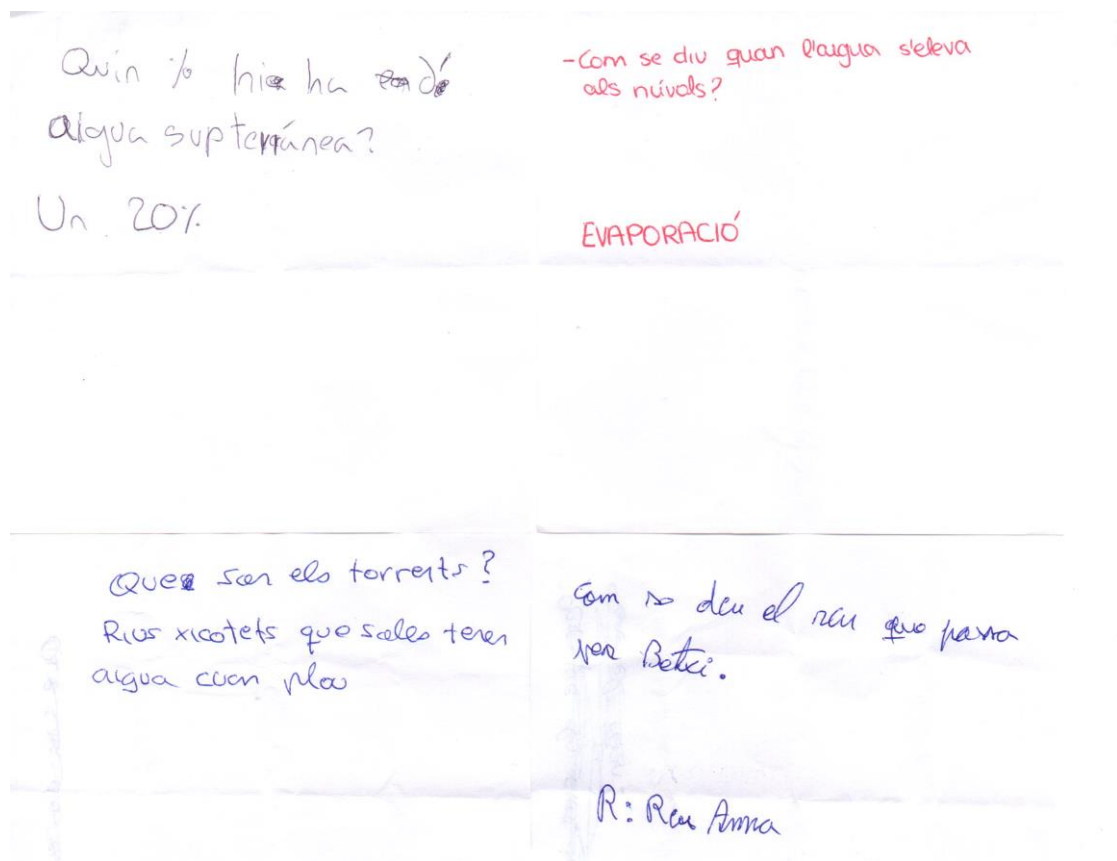 Quin % hi ha de
aigua supterránea?
Un 20%
-Com se diu quan l'aigua s'eleva
als núvols?
EVAPORACIÓ
Que son els torrents?
Rius xicotets que soles tenen
aigua cuan plou
Com se deu el reu que passa
per Betxi.
R: Reu Anna